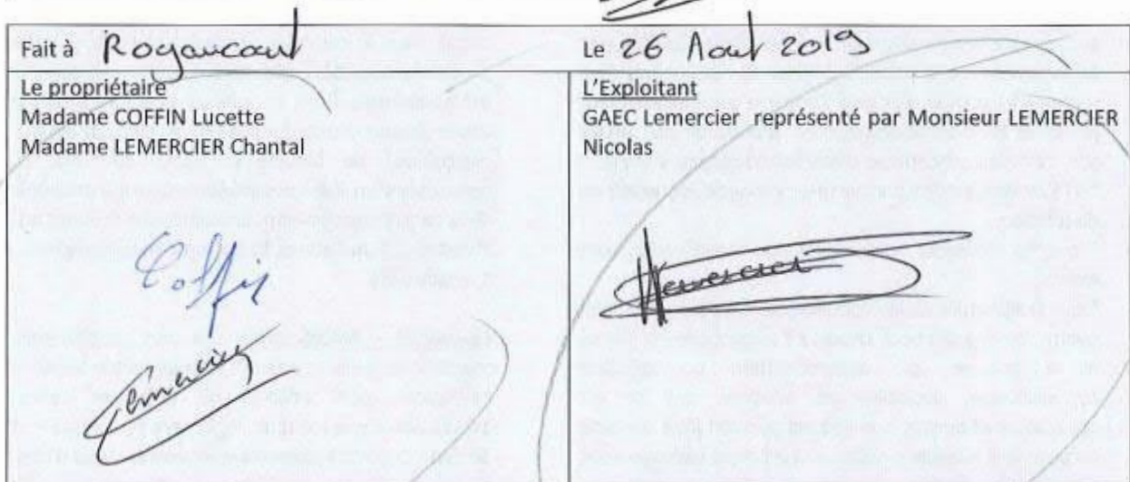 Fait à Rogaucourt
Le 26 Aout 2019
Le propriétaire
Madame COFFIN Lucette
Madame LEMERCIER Chantal
L'Exploitant
GAEC Lemercier représenté par Monsieur LEMERCIER
Nicolas
Coffin
Lemercier
Lemercier